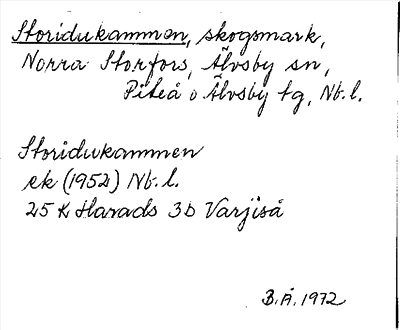 Storidukammen, skogsmark,
Norra Storfors, Älvsby sn,
Piteå o Älvsby tg, Nb. l.
Storidukammen
ek (1952) Nb. l.
25 K Harads 3b Varjiså
B.Å. 1972